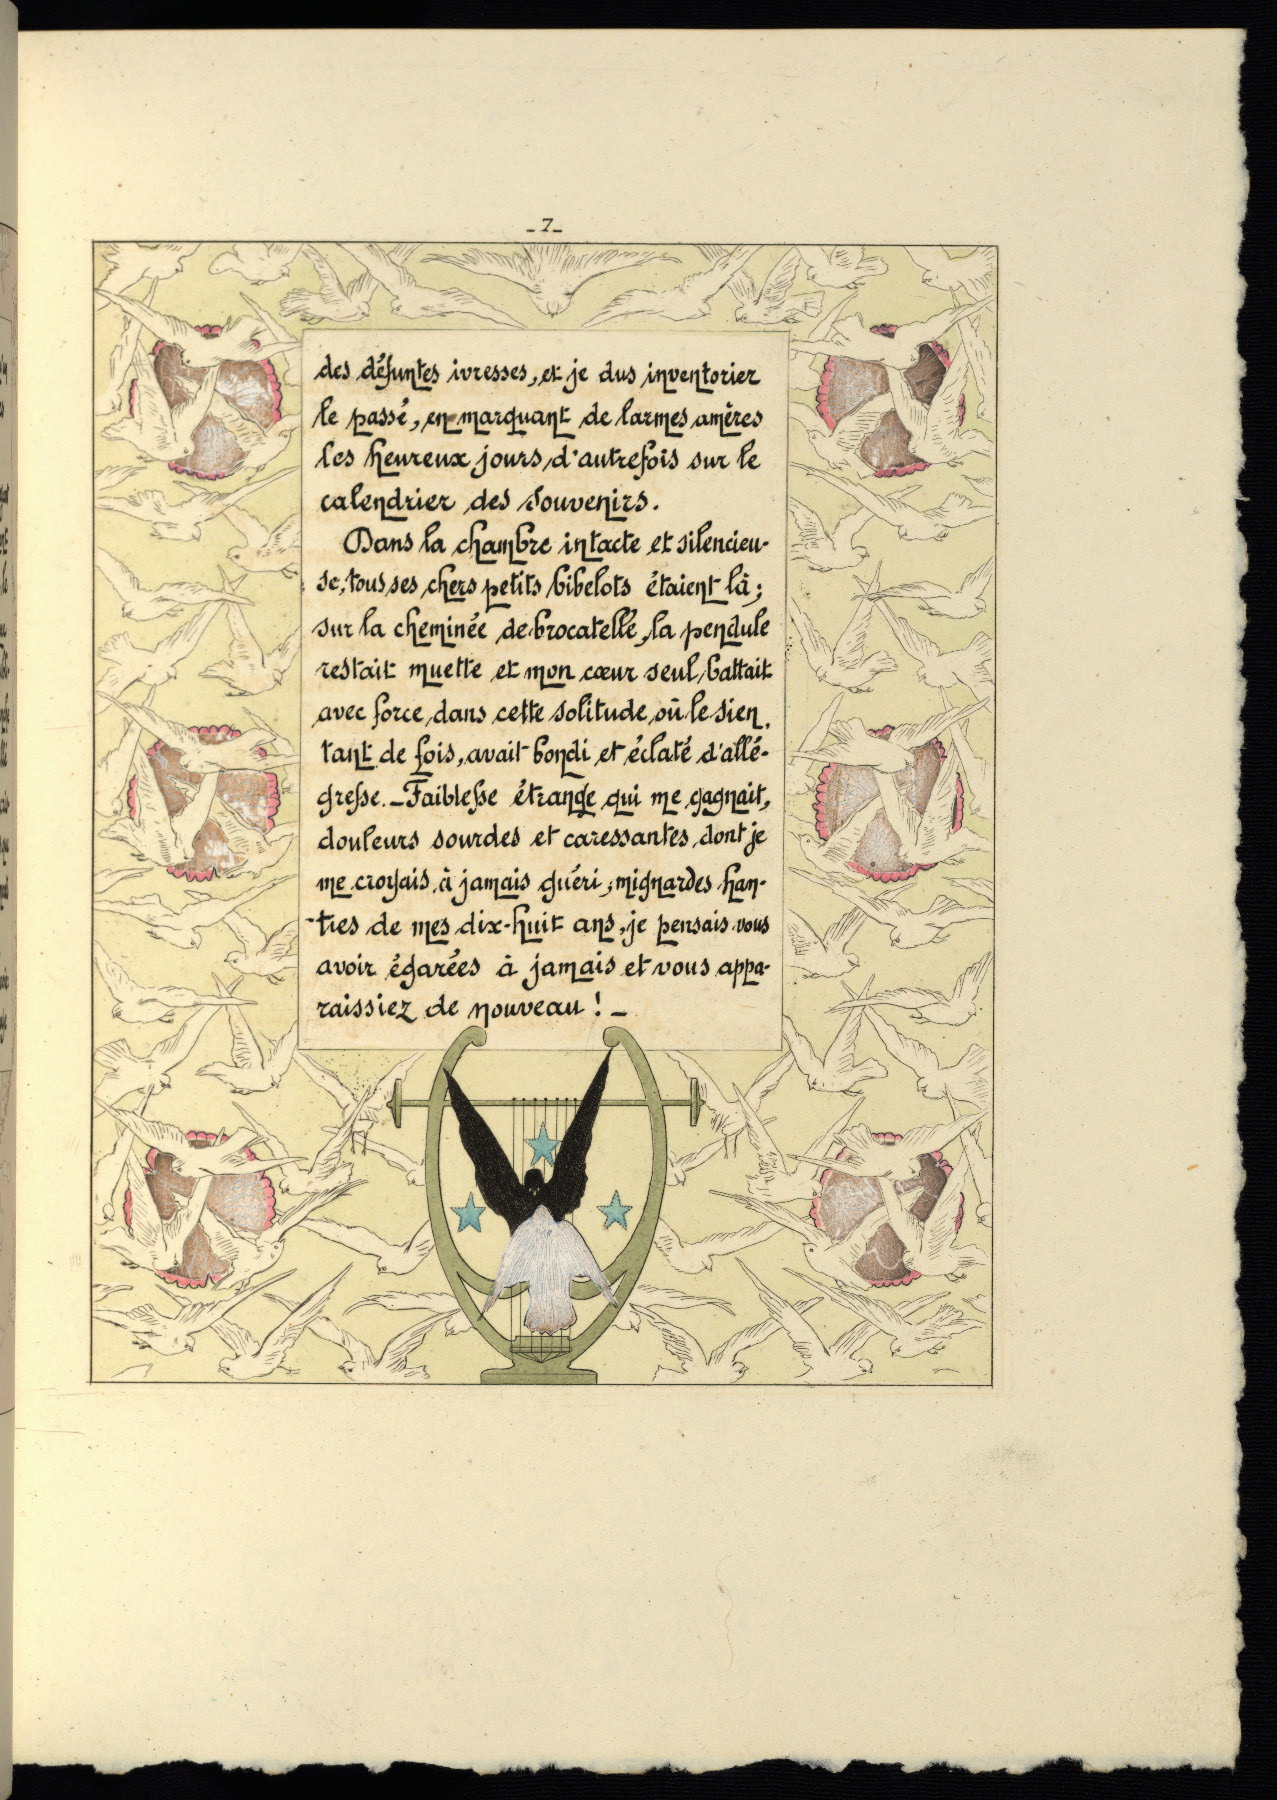 _7_
des défuntes ivresses, et je dus inventorier
le passé, en marquant de larmes amères
les heureux jours d'autrefois sur le
calendrier des souvenirs.
Dans la chambre intacte et silencieu-
se, tous ses chers petits bibelots étaient là ;
sur la cheminée de brocatelle, la pendule
restait muette et mon cœur seul battait
avec force dans cette solitude, où le sien,
tant de fois, avait bondi et éclaté d'allé-
gresse. _ Faiblesse étrange qui me gagnait,
douleurs sourdes et caressantes dont je
me croyais à jamais guéri ; mignardes han-
-ties de mes dix-huit ans, je pensais vous
avoir égarées à jamais et vous appa-
raissiez de nouveau ! _